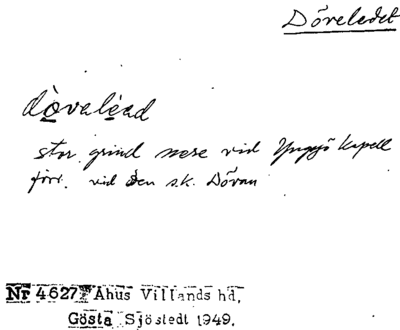 Döveledet
dòvaléad
stor grind nere vid Yngsjö kapell
förr. vid den s.k. Dövan
Nr 4627 Åhus Villands hd,
Gösta Sjöstedt 1949.